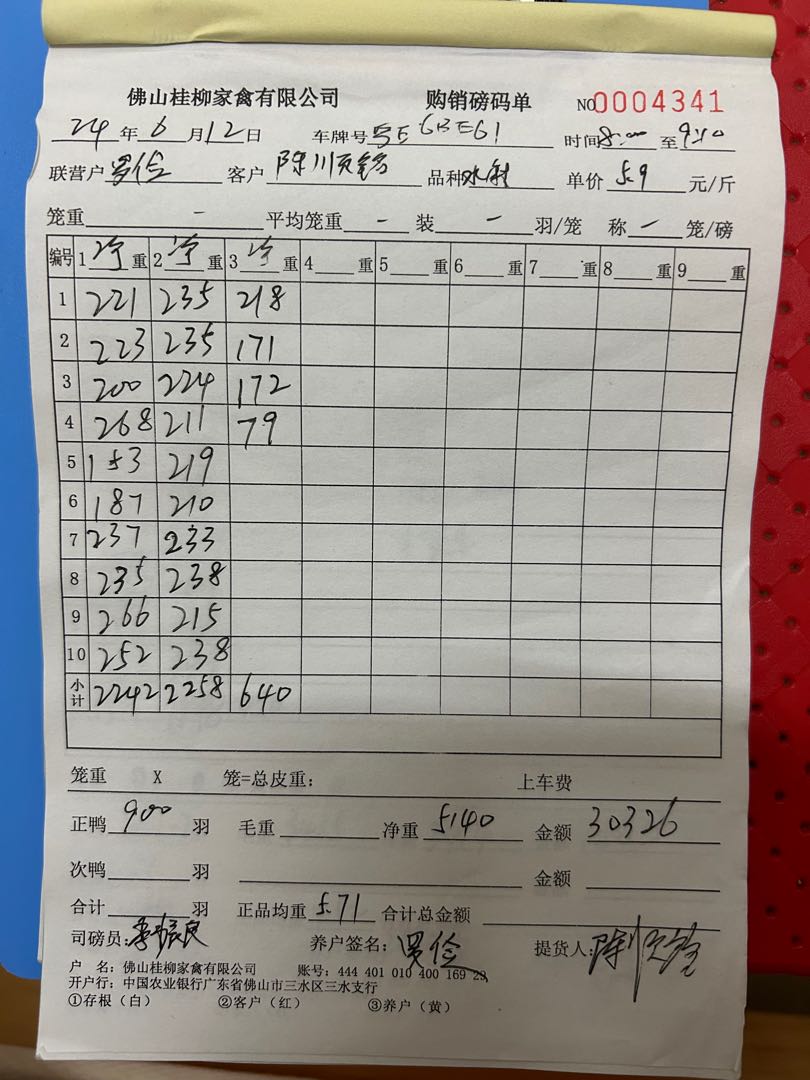 佛山桂柳家禽有限公司 购销磅码单 NO0004341
24年6月12日 车牌号粤E6BE61 时间8:00至9:10
联营户罗俭 客户陈顺 品种水 单价5.9元/斤
笼重 — 平均笼重 — 装 — 羽/笼 称 — 笼/磅
编号 1净重 2净重 3净重 4重 5重 6重 7重 8重 9重
1 221 235 218
2 223 235 171
3 200 224 172
4 268 211 79
5 1 3 219
6 187 210
7 237 233
8 235 238
9 266 215
10 252 238
小计 2242 2258 640
笼重 X 笼=总皮重: 上车费
正鸭900羽 毛重 净重5140 金额30326
次鸭 羽 金额
合计 羽 正品均重5.71 合计总金额
司磅员: 良 养户签名:罗俭 提货人:陈顺
户 名:佛山桂柳家禽有限公司 账号:444 401 010 400 169 29
开户行:中国农业银行广东省佛山市三水区三水支行
①存根(白) ②客户(红) ③养户(黄)